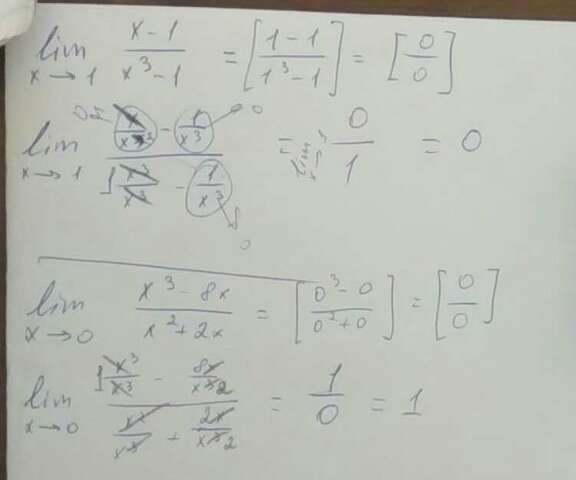 lim x→1 (x-1)/(x³-1) = [(1-1)/(1³-1)] = [0/0]
lim x→1 (x/x³ - 1/x³)/(x³/x³ - 1/x³) = lim x→1 0/1 = 0
lim x→0 (x³-8x)/(x²+2x) = [(0³-0)/(0²+0)] = [0/0]
lim x→0 (x³/x³ - 8x/x³ 2)/(x²/x³ + 2x/x³ 2) = 1/0 = 1